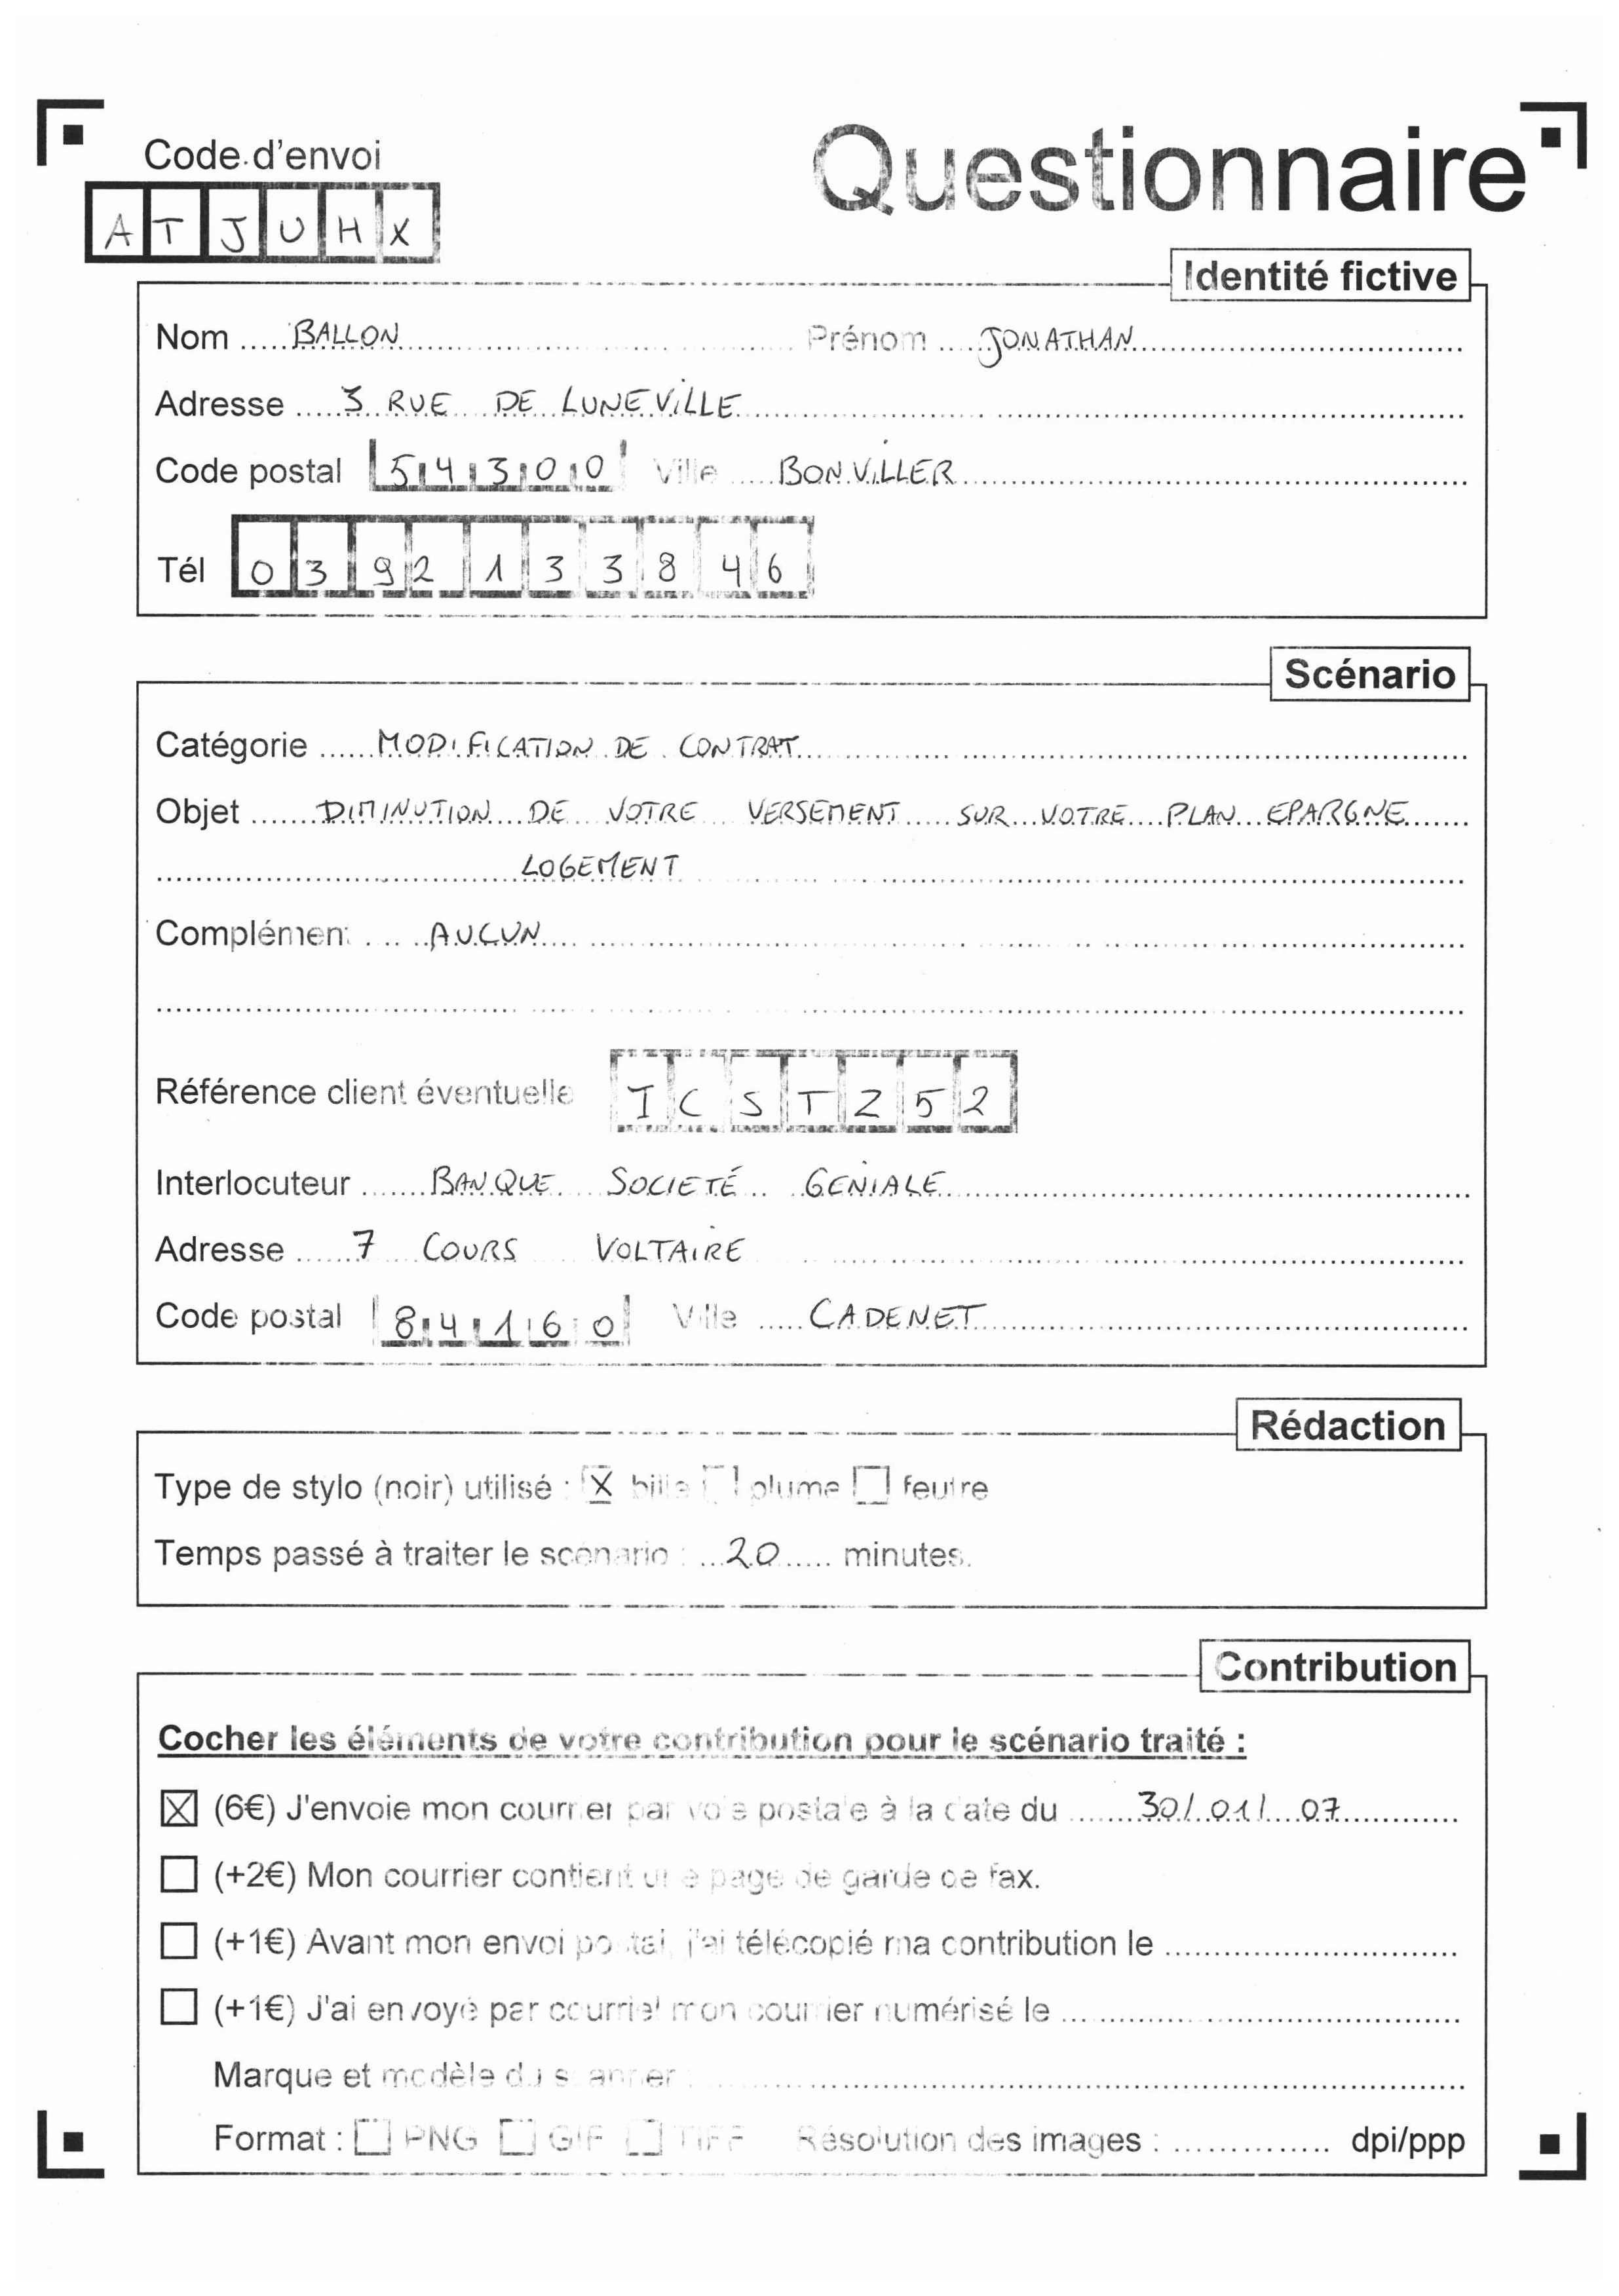 Code d'envoi
Questionnaire
ATJUHX
Identité fictive
Nom ..... BALLON Prénom .... JONATHAN
Adresse ..... 3 RUE DE LUNEVILLE
Code postal 54300 Ville ..... BONVILLER
Tél 0392133846
Scénario
Catégorie ...... MODIFICATION DE CONTRAT
Objet ....... DIMINUTION DE VOTRE VERSEMENT SUR VOTRE PLAN EPARGNE
LOGEMENT
Complément ..... AUCUN
Référence client éventuelle ICSTZ52
Interlocuteur ....... BANQUE SOCIETÉ GENIALE
Adresse ...... 7 COURS VOLTAIRE
Code postal 84160 Ville ..... CADENET
Rédaction
Type de stylo (noir) utilisé : X bille plume feutre
Temps passé à traiter le scénario : ... 20 ..... minutes.
Contribution
Cocher les éléments de votre contribution pour le scénario traité :
X (6€) J'envoie mon courrier par voie postale à la date du ...... 30/01/07
(+2€) Mon courrier contient une page de garde de fax.
(+1€) Avant mon envoi postal, j'ai télécopié ma contribution le ..............................
(+1€) J'ai envoyé par courriel mon courrier numérisé le ..............................
Marque et modèle du scanner : ..............................
Format : PNG GIF TIFF Résolution des images : .............. dpi/ppp